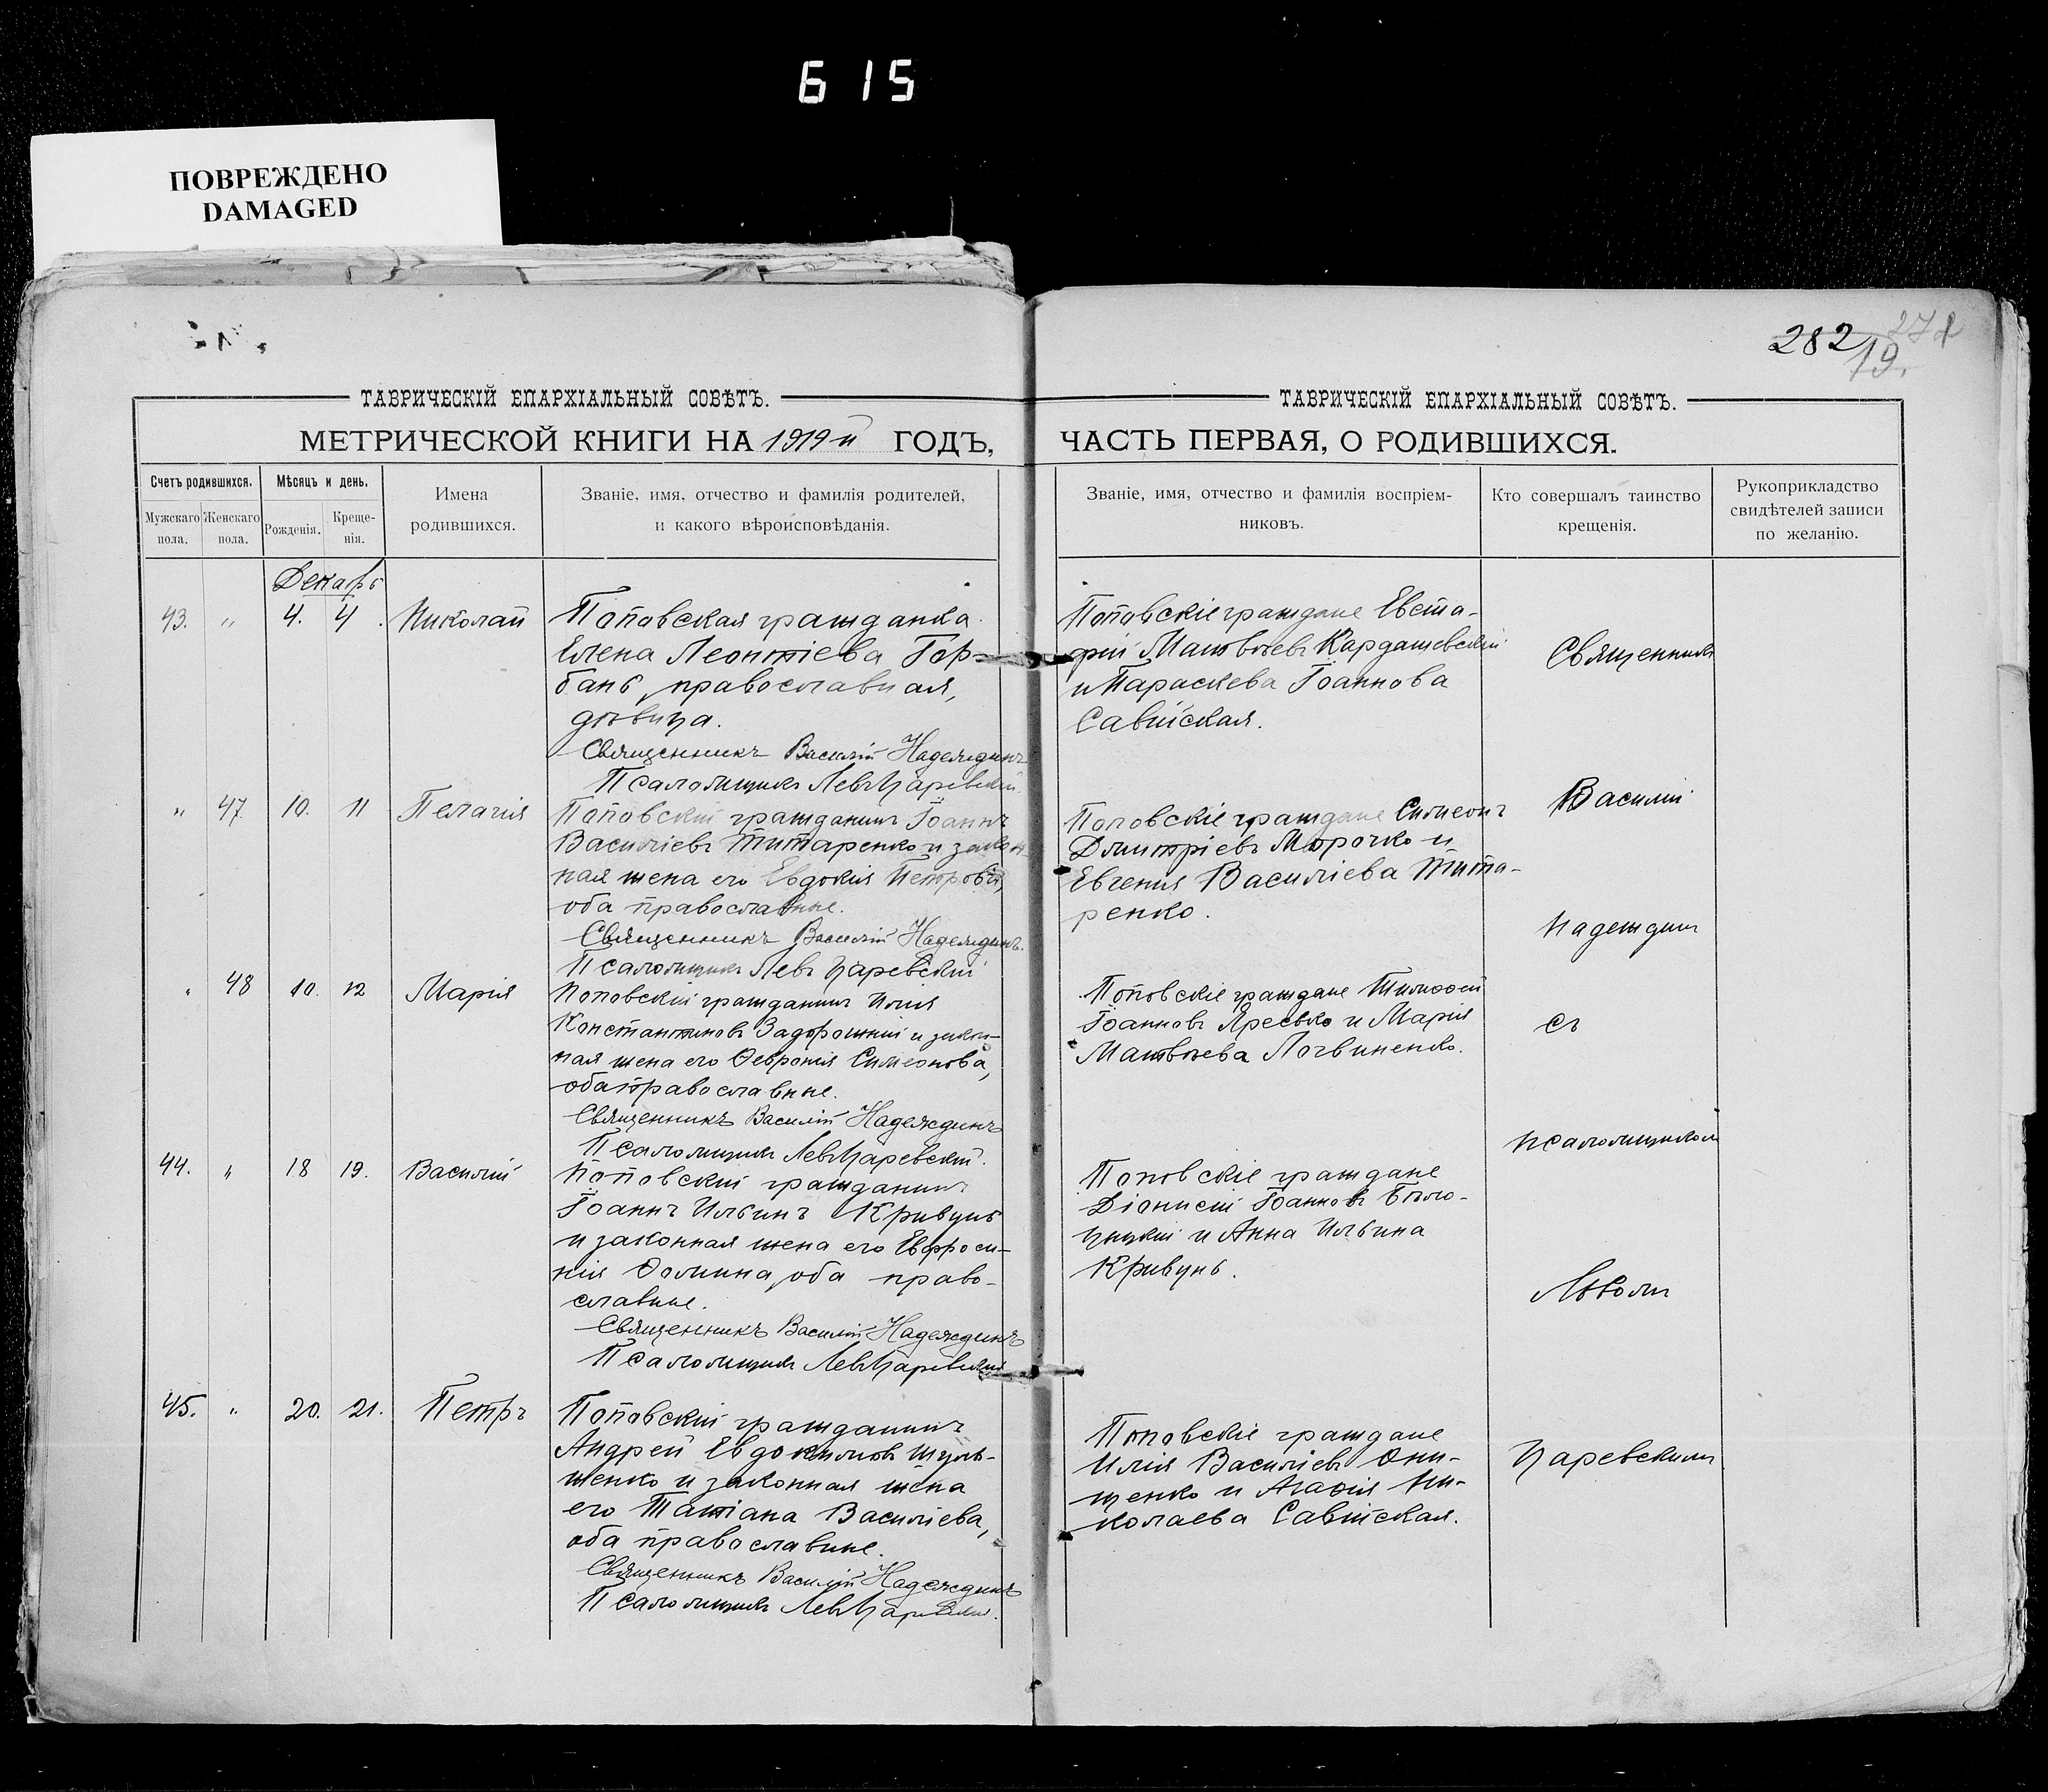 615
ПОВРЕЖДЕНО
DAMAGED
282
19.
ТАВРИЧЕСКІЙ ЕПАРХІАЛЬНЫЙ СОВѢТЪ.
МЕТРИЧЕСКОЙ КНИГИ НА 1919-й ГОДЪ,
Счетъ родившихся.
Мѣсяцъ и день.
Мужскаго пола.
Женскаго пола.
Рожденія.
Креще-
нія.
Имена
родившихся.
Званіе, имя, отчество и фамилія родителей,
и какого вѣроисповѣданія.
Декабрь
43. " 4. 4. Николай
Поповская гражданка
Елена Леонтіева Гор-
бань, православная,
дѣвица.
Священникъ Василій Надеждинъ
Псаломщикъ Левъ Царевскій.
" 47. 10. 11 Пелагія
Поповскій гражданинъ Іоаннъ
Василіевъ Титаренко и закон-
ная жена его Евдокія Петрова,
оба православные.
Священникъ Василій Надеждинъ.
Псаломщикъ Левъ Царевскій
" 48 10. 12 Марія
Поповскій гражданинъ Илія
Константиновъ Задорожній и закон-
ная жена его Ѳевронія Симеонова,
оба православные.
Священникъ Василій Надеждинъ
Псаломщикъ Левъ Царевскій.
44. " 18 19. Василій
Поповскій гражданинъ
Іоаннъ Ильинъ Кривунь
и законная жена его Евфроси-
нія Ѳомина, оба право-
славные.
Священникъ Василій Надеждинъ
Псаломщикъ Левъ Царевскій
45. " 20. 21. Петръ
Поповскій гражданинъ
Андрей Евдокимовъ Шуль-
женко и законная жена
его Татіана Василіева,
оба православные.
Священникъ Василій Надеждинъ
Псаломщикъ Левъ Царевскій.
ТАВРИЧЕСКІЙ ЕПАРХІАЛЬНЫЙ СОВѢТЪ.
ЧАСТЬ ПЕРВАЯ, О РОДИВШИХСЯ.
Званіе, имя, отчество и фамилія воспріем-
никовъ.
Кто совершалъ таинство
крещенія.
Рукоприкладство
свидѣтелей записи
по желанію.
Поповскіе граждане Евста-
фій Матвѣевъ Кардашевскій
и Параскева Іоаннова
Савійская.
Поповскіе граждане Симеонъ
Димитріевъ Морочко и
Евгенія Василіева Тита-
ренко.
Поповскіе граждане Тимоѳей
Іоанновъ Яресько и Марія
Матвѣева Логвиненко.
Поповскіе граждане
Діонисій Іоанновъ Бѣло-
цуцкій и Анна Ильина
Кривунь.
Поповскіе граждане
Илія Василіевъ Они-
щенко и Агаѳія Ни-
колаева Савійская.
Священникъ
Василій
Надеждинъ
съ
псаломщикомъ
Львомъ
Царевскимъ